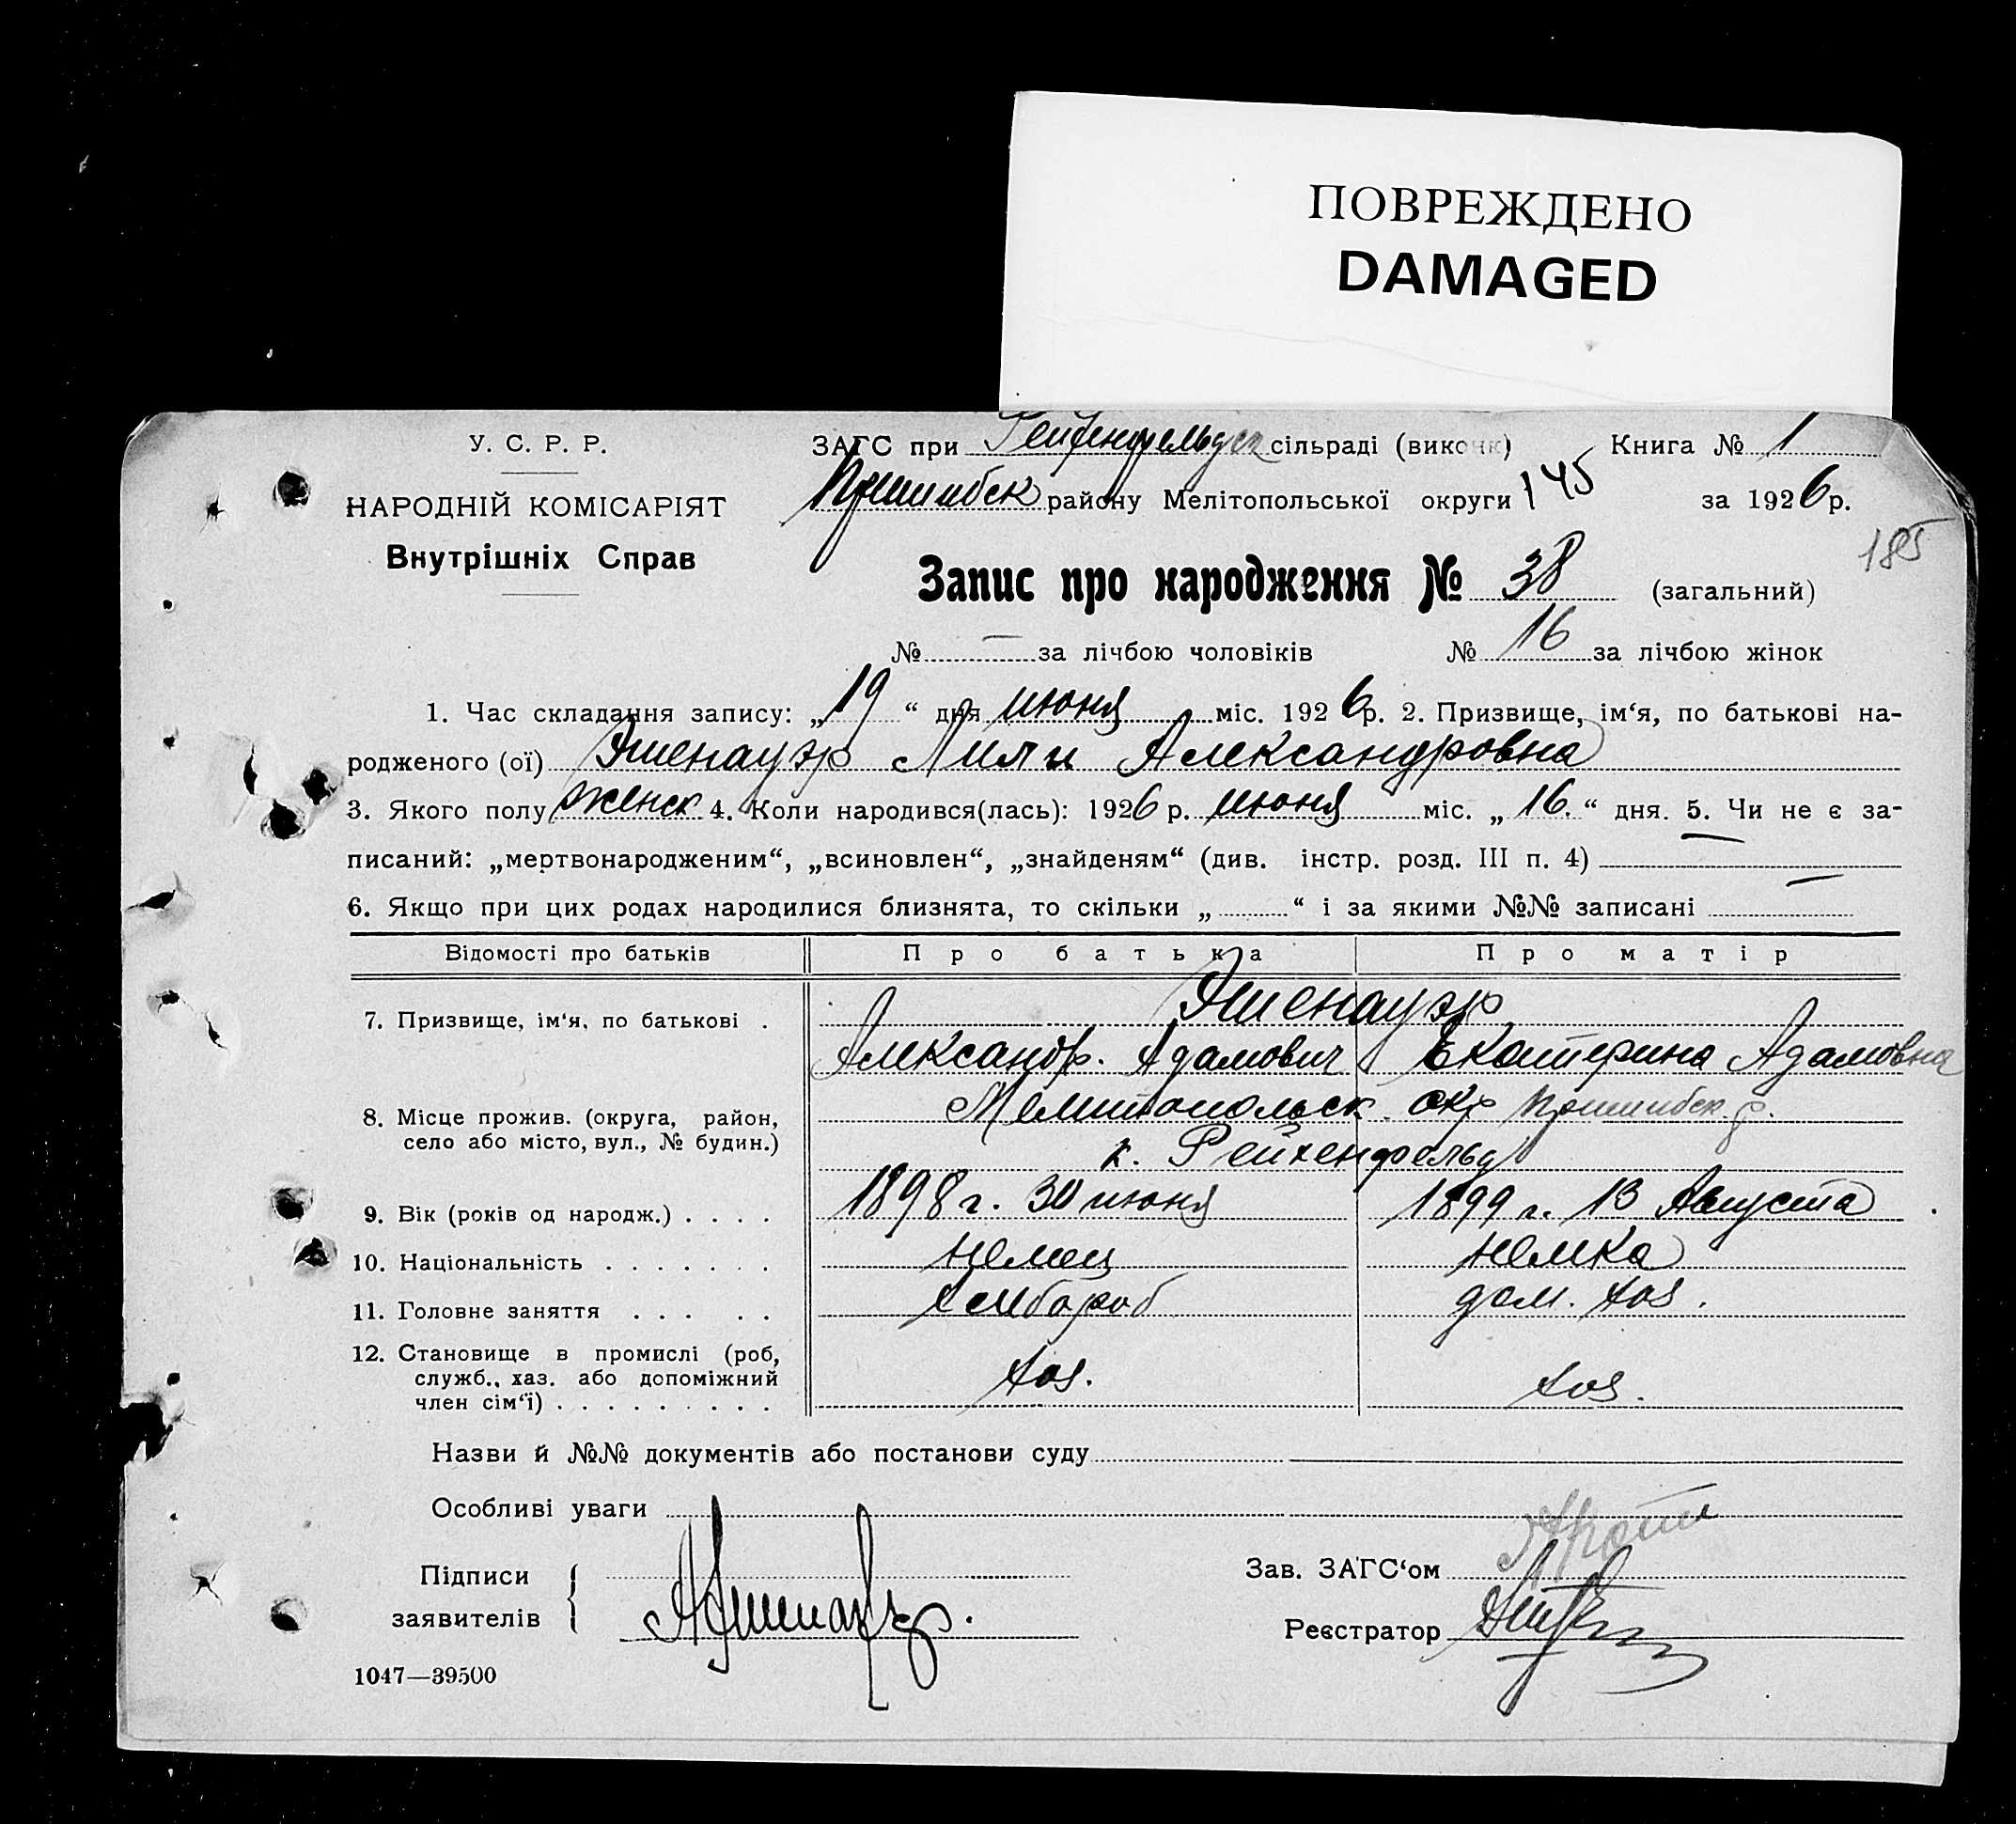 ПОВРЕЖДЕНО
DAMAGED
У. С. Р. Р.
НАРОДНІЙ КОМІСАРІЯТ
Внутрішніх Справ
ЗАГС при Рейхенфельдск сільраді (виконк) Книга № 1
Пришибск району Мелітопольської округи 145 за 1926 р.
185
Запис про народження № 38 (загальний)
№ — за лічбою чоловіків № 16 за лічбою жінок
1. Час складання запису: „19“ дня июня міс. 1926 р. 2. Призвище, ім‘я, по батькові на-
родженого (ої) Яшенауэр Лили Александровна
3. Якого полу женск 4. Коли народився(лась): 1926 р. июня міс. „16.“ дня. 5. Чи не є за-
писаний: „мертвонародженим“, „всиновлен“, „знайденям“ (див. інстр. розд. III п. 4) —
6. Якщо при цих родах народилися близнята, то скільки „ “ і за якими №№ записані —
Відомості про батьків Про батька Про матір
7. Призвище, ім‘я, по батькові . Яшенауэр
Александр. Адамович Екатерина Адамовна
8. Місце прожив. (округа, район, село або місто, вул., № будин.) Мелитопольск. окр Пришибск. р.
к. Рейхенфельд
9. Вік (років од народж.) . . . . 1898 г. 30 июня 1899 г. 13 Августа
10. Національність . . . . . . . немец немка
11. Головне заняття . . . . . хлебороб дом. хоз.
12. Становище в промислі (роб, служб., хаз. або допоміжний член сім‘ї) . . . . . . . . . хоз. хоз.
Назви й №№ документів або постанови суду
Особливі уваги
Підписи заявителів
Зав. ЗАГС‘ом
Реєстратор
1047—39500